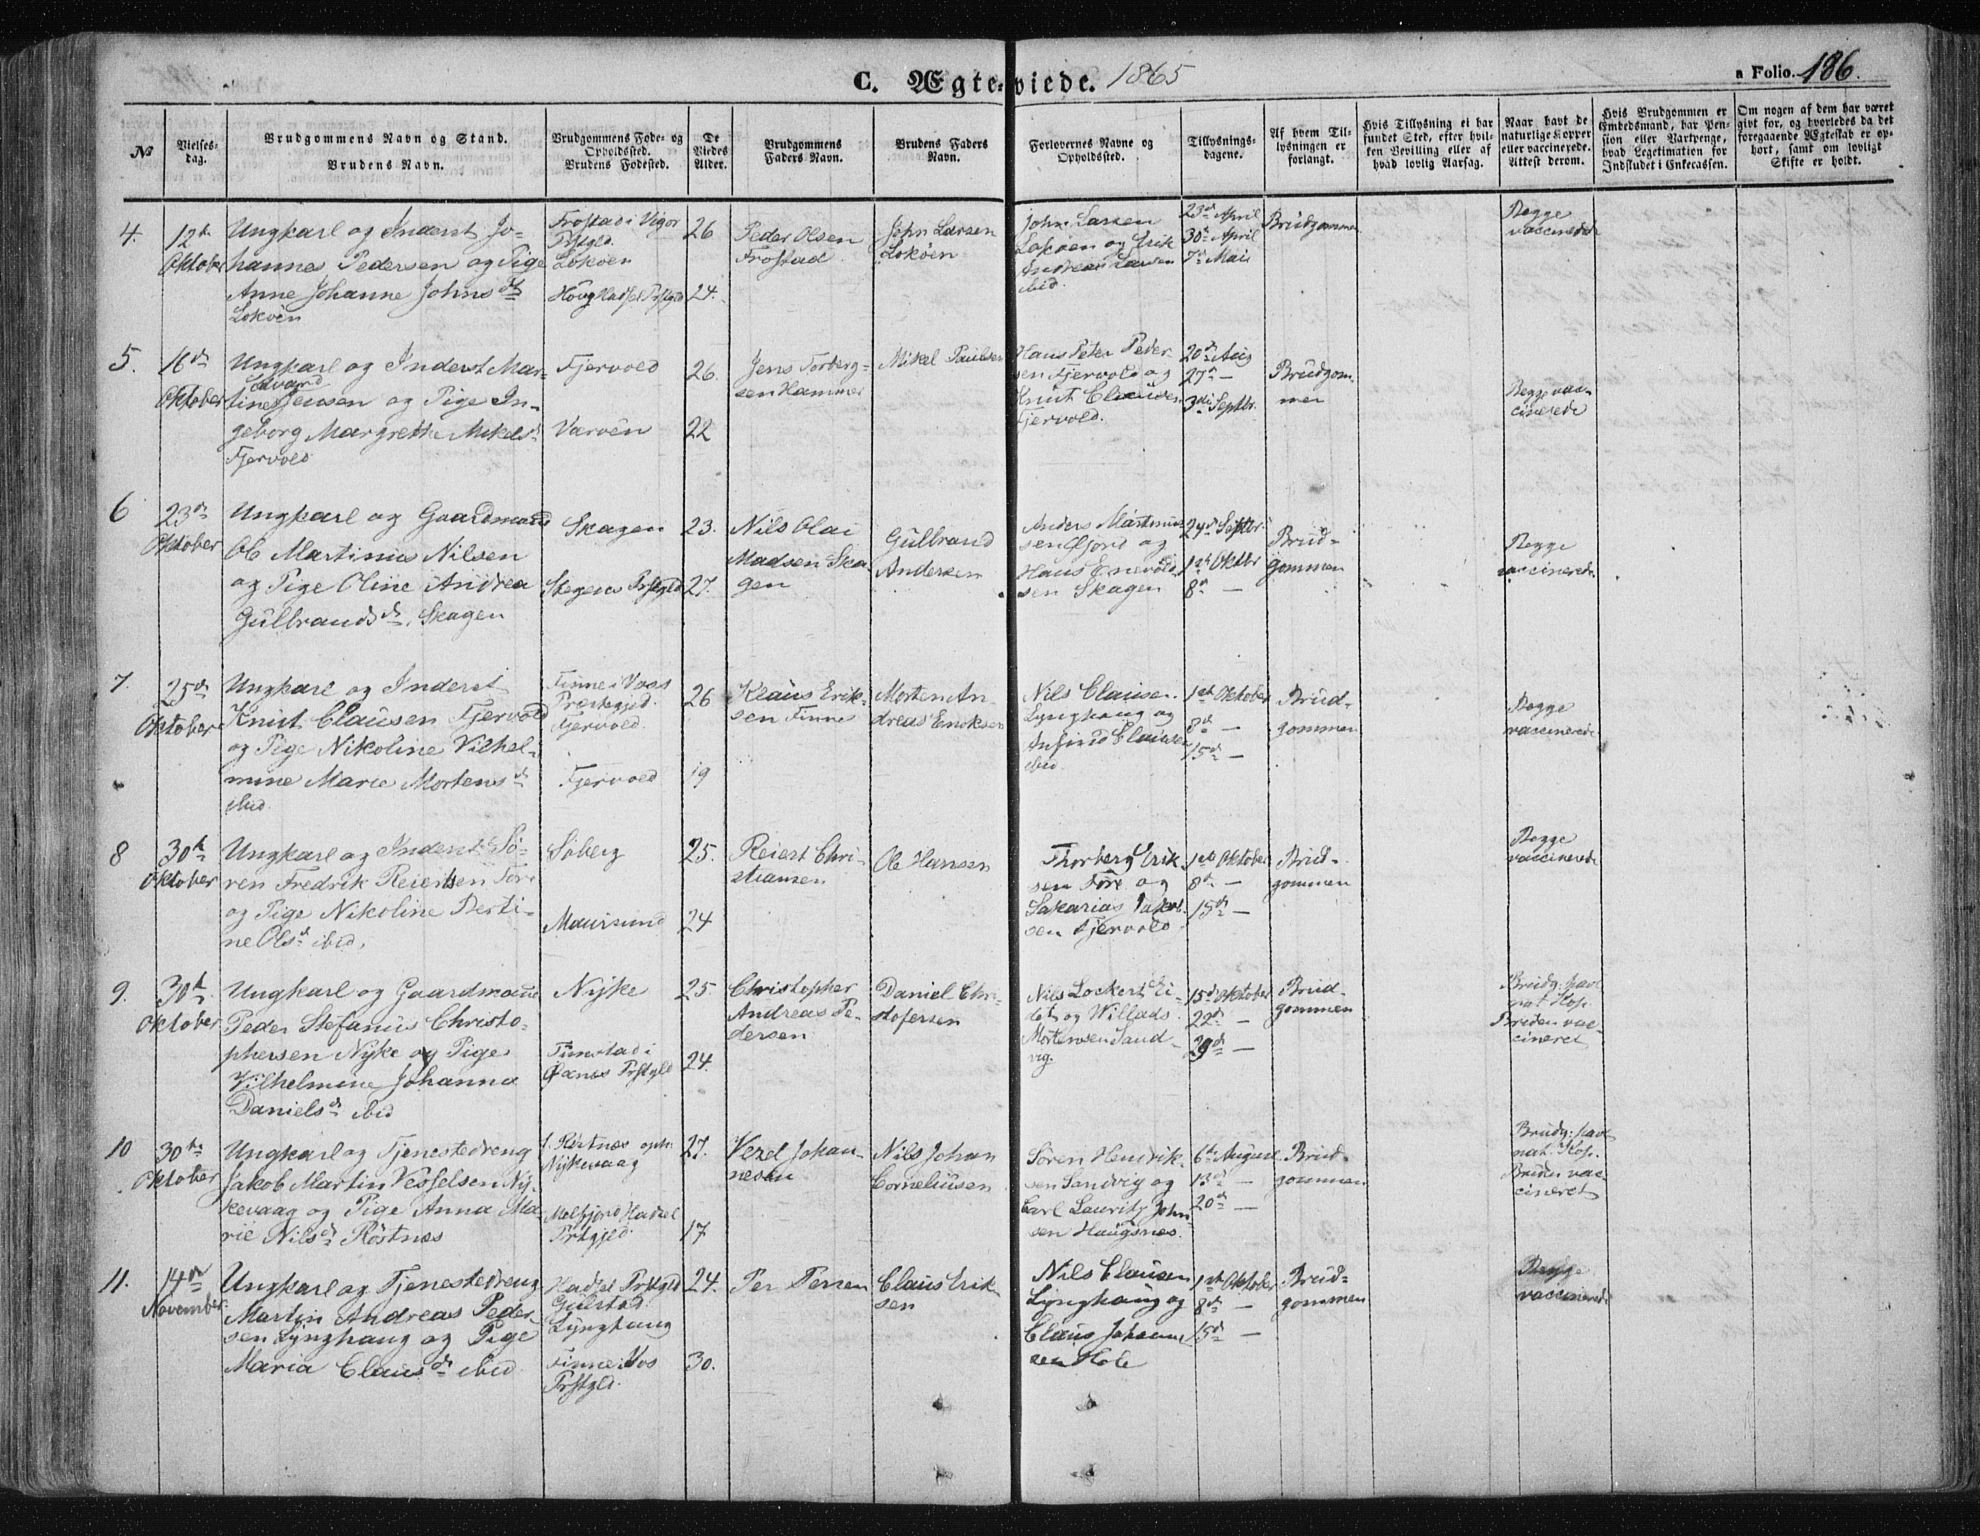 C. Ægteviede. 1865
a Folio. 186.
No
Vielses-
dag.
Brudgommens Navn og Stand.
Brudens Navn.
Brudgommens Føde- og
Opholdssted.
Brudens Fødested.
De
Viedes
Alder.
Brudgommens
Faders Navn.
Brudens Faders
Navn.
Forlovernes Navne og
Opholdssted.
Tillysnings-
dagene.
Af hvem Til-
lysningen er
forlangt.
Hvis Tillysning ei har
fundet Sted, efter hvil-
ken Bevilling eller af
hvad lovlig Aarsag.
Naar havt de
naturlige Kopper
eller vaccinerede.
Attest derom.
Hvis Brudgommen er
Embedsmand, har Pen-
sion eller Vartpenge,
hvad Legitimation for
Indskudet i Enkecassen.
Om nogen af dem har været
gift før, og hvorledes da det
foregaaende Ægteskab er op-
hørt, samt om lovligt
Skifte er holdt.
4.
12te
Oktober
Ungkarl og Inderst Jo-
hannes Pedersen og Pige
Anne Johanne Johnsdr
Lokøen
Frøstad i Vigor
Prstgld.
Lokøen
Høvg Hadsel Prstgjld
26
24.
Peder Olsen
Frøstad
John Larsen
Lokøen
John Larsen
Lokøen og Erik
Andreas Larsen
ibid.
23de April
30te April
7de Mai
Brudgommen
Begge
vaccinerede
5.
16de
Oktober
Ungkarl og Inderst Mar-
Edvard
tines Jensen og Pige In-
geborg Margrethe Mikelsdr
Fjervold
Fjervold
Varøen
26.
22
Jens Torberg-
sen Hammer
Mikel Paulsen
Hans Peter Peder-
sen Fjervold og
Knut Clausen
Fjervold.
20de Aug
27de —
3die Septbr.
Brudgom-
men
Begge vac-
cinerede
6
23de
Oktober
Ungkarl og Gaardmand
Ole Martinus Nilsen
og Pige Oline Andrea
Gulbrandsdr. Skagen
Skagen
Stegens Prstgld
23.
27.
Nils Olai
Madsen Ska-
gen
Gulbrand
Andersen
Anders Martinus-
sen Fjord og
Hans Enevold-
sen Skagen
24de Septbr.
1ste Oktbr
8de —
Brud-
gommen
Begge
vaccinerede
7.
25de
Oktober
Ungkarl og Inderst
Knut Clausen Fjervold
og Pige Nikoline Vilhel-
mine Marie Mortensdr
ibid.
Finne i Voss
Præstegjld.
Fjervold.
Fjervold
26
19
Klaus Erik-
sen Finne
Morten An-
dreas Eriksen
Nils Clausen
Lynghaug og
Anfind Clausen
ibid.
1ste Oktober
8de —
15de —
Brud-
gommen
Begge
vaccinerede
8
30te
Oktober
Ungkarl og Inderst Sö-
ren Fredrik Reiertsen Före
og Pige Nikoline Berti-
ne Olsdr ibid.
Söberg
Maursund
25.
24
Reiert Chri-
stiansen
Ole Hansen
Thorberg Erik-
sen Före og
Sakarias Jakob-
sen Fjervold
1ste Oktober
8de —
15de —
Brud-
gommen
Begge
vaccinerede
9.
30te
Oktober
Ungkarl og Gaardmand
Peder Stefanus Christo-
phersen Nyke og Pige
Vilhelmine Johanna
Danielsdr ibid
Nyke
Tunstad i
Øxnes Prstgld
25
24.
Christopher
Andreas Pe-
dersen
Daniel Chri-
stofersen
Nils Lockert Ei-
det og Willads
Mortensen Sand-
vig.
15de Oktober
22de —
29de —
Brud-
gommen
Brudg: havt
nat. Kop.
Bruden vac-
cineret
10
30te
Oktober
Ungkarl og Tjenestedreng
Jakob Martin Vesselsen Ny-
kevaag og Pige Anna Ma-
rie Nilsdr Röstnes
f. Röstnes oph.
Nykevaag
Melfjord Hadsel
Prstgjld.
27.
17
Vezel Johan-
nesen
Nils Johan
Corneliusen
Sören Henrik-
sen Sandvig og
Carl Lauritz John-
sen Haugsnes.
6te August
13de —
20de —
Brud-
gommen
Brudg: havt
nat. Kop.
Bruden vac-
cineret
11.
14de
November
Ungkarl og Tjenestedreng
Martin Andreas Peder-
sen Lynghaug og Pige
Maria Clausdr ibid
Hadsel Prstgld
Gulstad
Lynghaug
Finne i Vos
Prstgld.
24.
30.
Per Persen
Claus Erik-
sen
Nils Clausen
Lynghaug og
Claus Johanne-
sen Hole
1ste Oktober
8de —
15de —
Brud-
gommen
Begge
vaccinerede